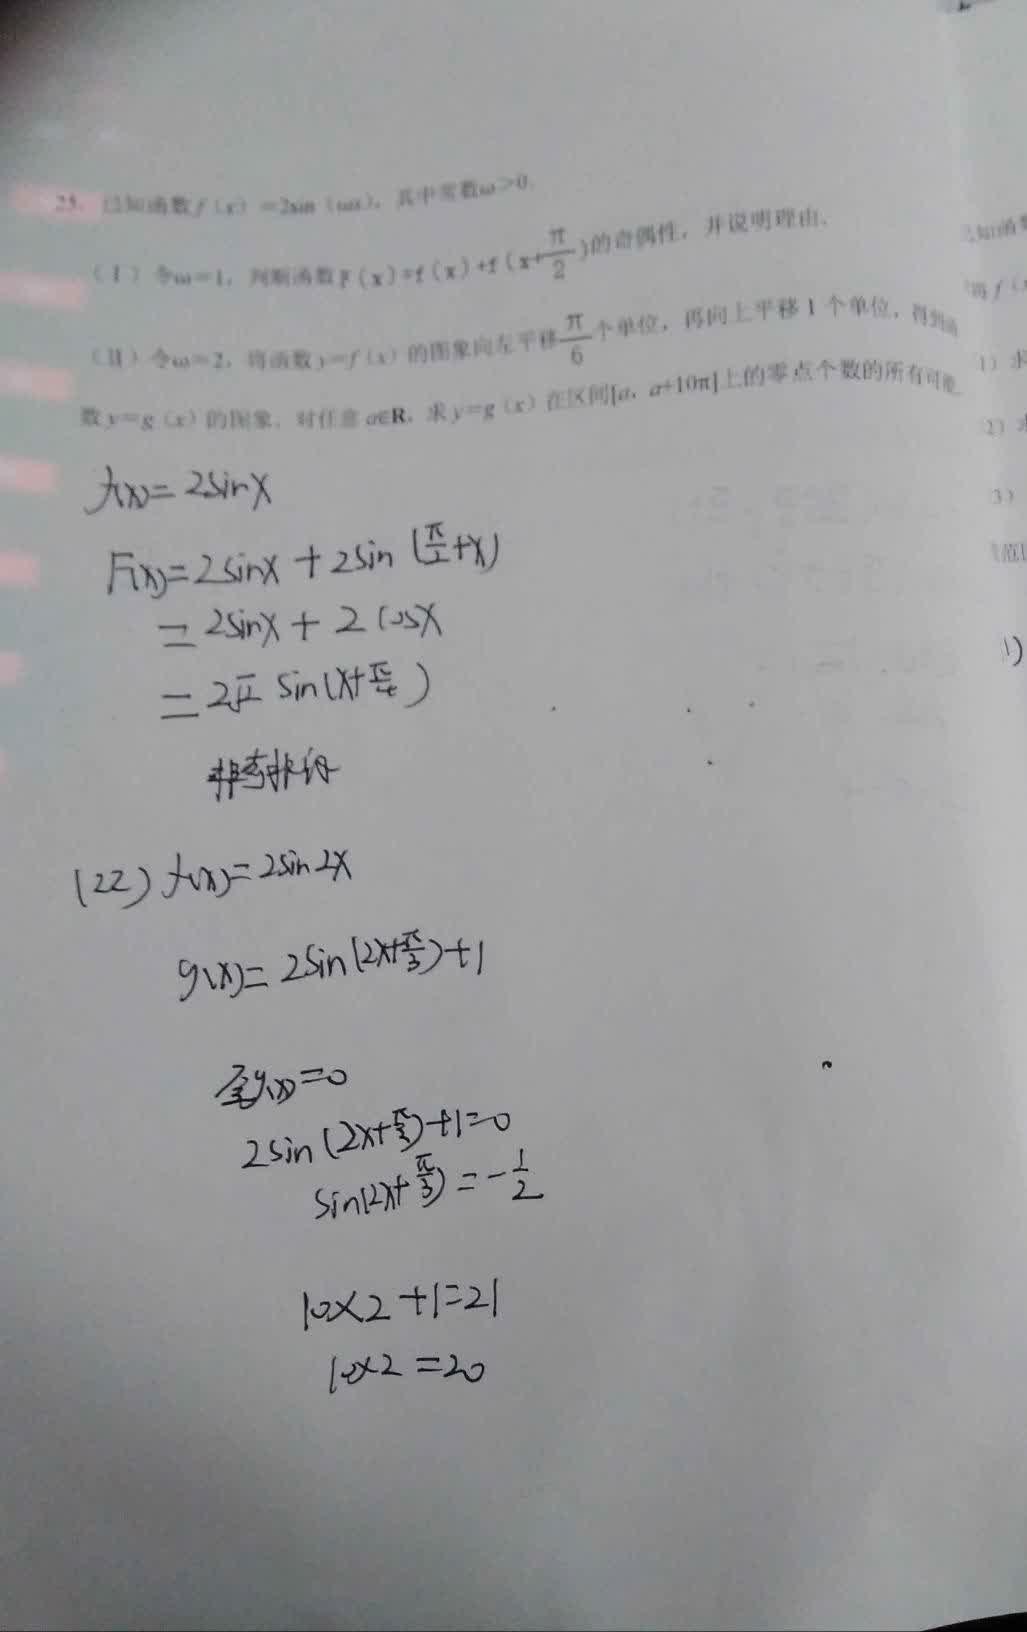 25. 已知函数f(x)=2sin(ωx),其中常数ω>0.
(Ⅰ)令ω=1,判断函数F(x)=f(x)+f(x+π/2)的奇偶性,并说明理由.
(Ⅱ)令ω=2,将函数y=f(x)的图象向左平移π/6个单位,再向上平移1个单位,得到函
数y=g(x)的图象.对任意a∈R,求y=g(x)在区间[a,a+10π]上的零点个数的所有可能
f(x)=2sinx
F(x)=2sinx+2sin(π/2+x)
=2sinx+2cosx
=2√2 sin(x+π/4)
非奇非偶
(22) f(x)=2sin2x
g(x)=2sin(2x+π/3)+1
令g(x)=0
2sin(2x+π/3)+1=0
sin(2x+π/3)=-1/2
10×2+1=21
10×2=20
知函数
f(x
1) 求
2)
3)
1)